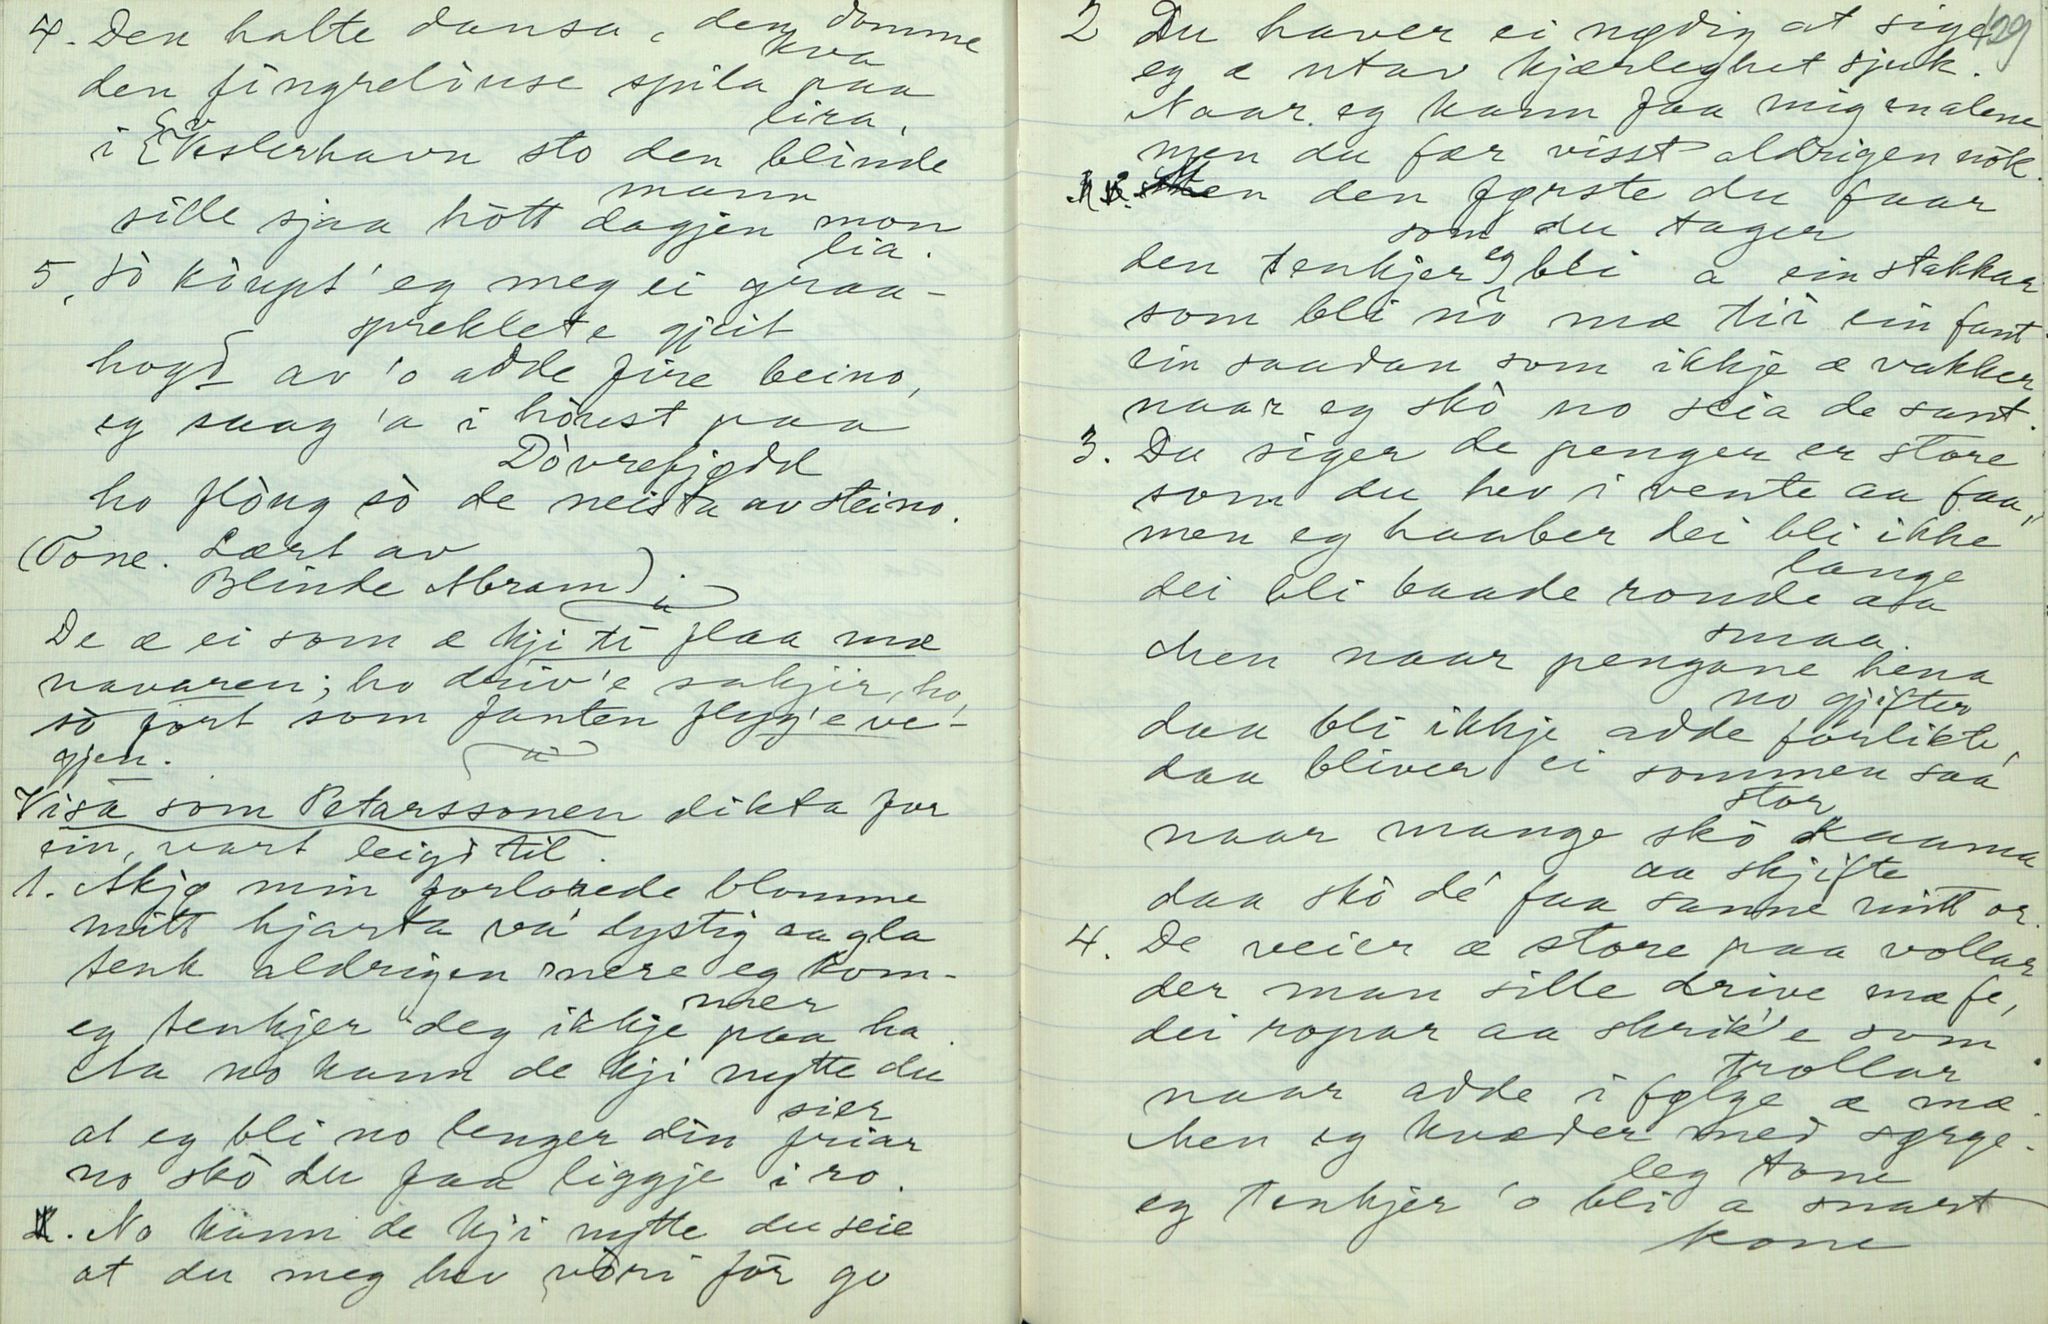 4. Den halte dansa, den domme
kva
den fingrelause spila paa
lira,
i Vesterhavn sto den blinde
mann
sille sjaa hòtt dagjen mon
lia.
5, Sò kòupt' eg meg ei graa-
spreklete gjeit
hogd av 'o adde fire beino,
eg saag 'a i hòust paa
Dòvrefjødd
ho flòug sò de neista av steino.
(Tone. Lært av
Blinde Abram).
De æ ei som æ kji ti flaa mæ
navaren; ho driv'e sakjir, ho,
sò fort som fanten flyg'e ve-
gjen.
Visa som Petarssonen dikta for
ein, vart leigd til.
1. Akjø min forlorede blomme
mitt hjarta va' lystig aa gla
tenk aldrigen mere eg kom-
mer
eg tenkjer deg ikkje paa ha.
Aa no kann de kji nytte du
sier
at eg bli no lenger din friar
no skò du faa liggje i ro.
No kann de kji nytte du seie
at du meg hev vòri fòr go
129
2 Du haver ei nødig at sige
eg æ utav kjærleghet sjuk.
Naar eg kann faa mig malene
men du fær visst aldrigen nòk.
Men den første du faar
som du tager
den tenkjer eg bli a ein stakkar
som bli nò mæ tii ein fant
ein saadan som ikkje æ vakker
naar eg skò no seia de sant.
3. Du siger de penger er store
som du hev i vente aa faa,
men eg haaber dei bli ikke
lange
dei bli baade ronde aa
smaa.
Men naar pengane hena
no gjifter
daa bli ikkje adde forlikte,
daa bliver ei sommen saa
stor
naar mange skò kaama
aa skjifte
daa skò dé faa sanne mitt or.
4. De veier æ store paa vollar
der man sille drive mæ fe,
dei ropar aa skrik'e som
trollar
naar adde i følge æ mæ.
Men eg kvæder med sørge-
leg tone
eg tenkjer 'o bli a snart
kone